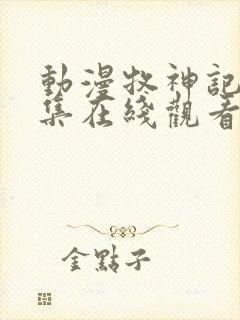 動漫牧神記
集在綫觀看
金點子